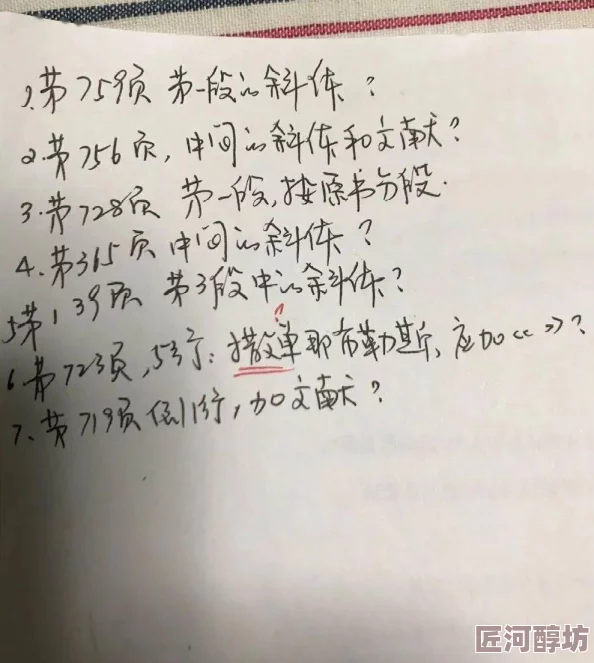 1.第759页 第一段的斜体?
2.第756页,中间的斜体和文献?
3.第728页 第一段,按原书分段.
4.第365页 中间的斜体?
5第139页 第3段中的斜体?
?
6.第723页,5行:撒单耶布勒斯,应加《》?
7、第719页倒1行,加文献?
匠河醇坊